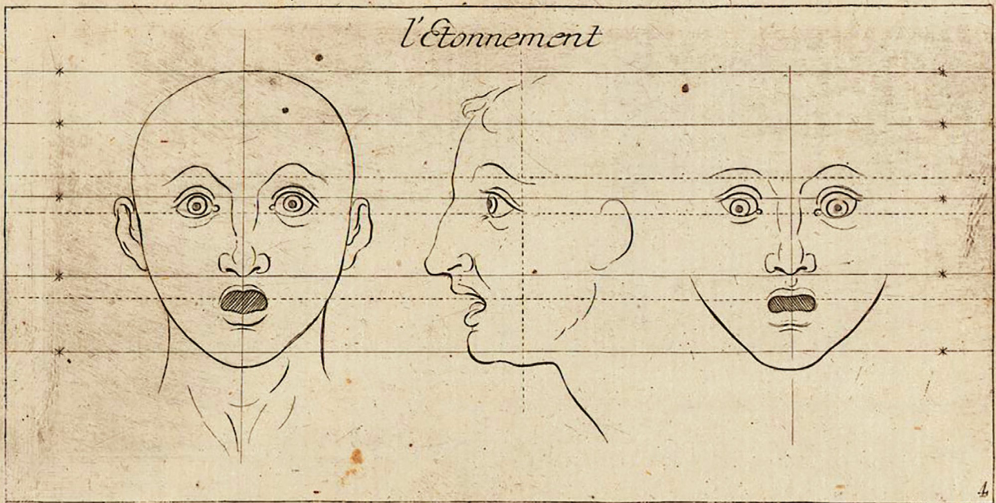 l'Etonnement
4